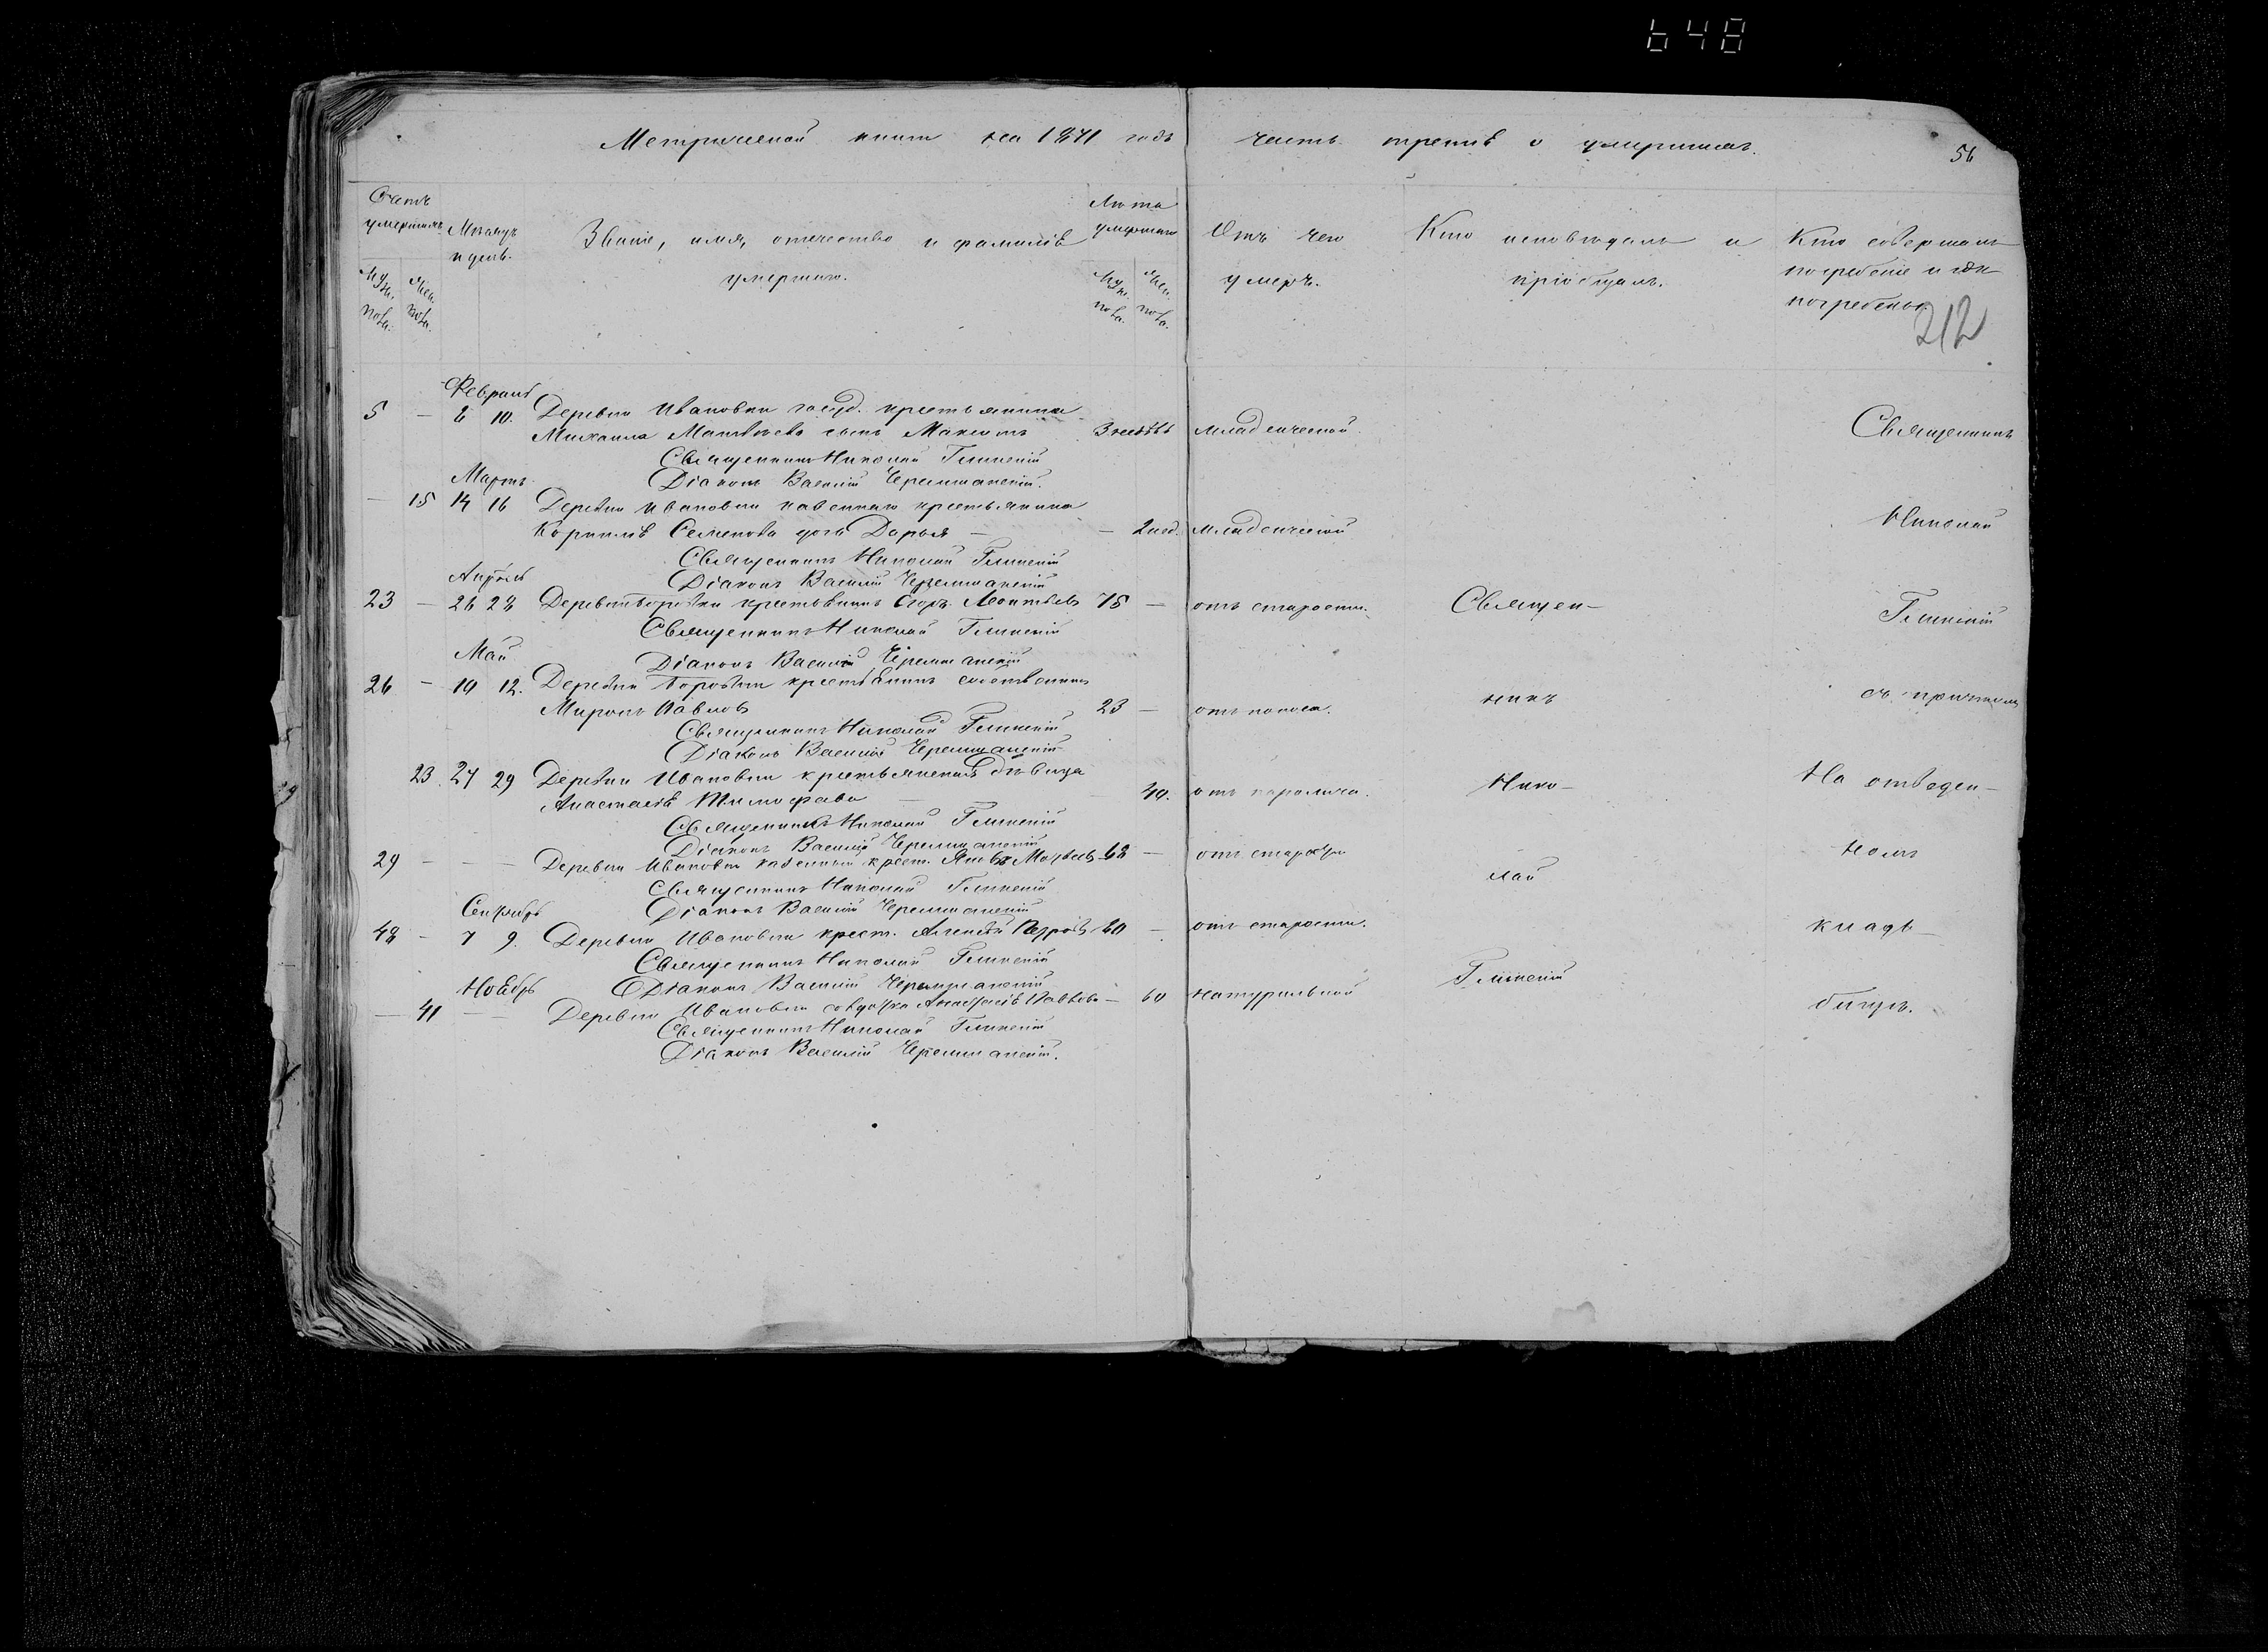 648
Метрической книги на 1871 годъ часть третья о умершихъ.
56
Счетъ умершихъ
Муж. пола.
Жен. пола.
Мѣсяцъ и день.
Званіе, имя, отчество и фамилія умершаго.
Лѣта умершаго
Муж. пола.
Жен. пола.
Отъ чего умеръ.
Кто исповѣдалъ и пріобщалъ.
Кто совершалъ погребеніе и гдѣ погребены.
212
Февраля
5 — 8 10. Деревни Ивановки госуд. крестьянина
Михаила Матвѣева сынъ Максимъ 3 младенческой. Священникъ
Священникъ Николай Глинскій
Мартъ. Діаконъ Василій Черемшанскій.
— 15 14 16 Деревни Ивановки казеннаго крестьянина Николай
Корнилія Семенова дочь Дарья — — 2 нед. младенческой
Священникъ Николай Глинскій
Апрѣль Діаконъ Василій Черемшанскій
23 — 26 28 Деревни Боровки крестьянинъ Егоръ Леонтьевъ 75 — отъ старости. Священ- Глинскій
Священникъ Николай Глинскій
Май Діаконъ Василій Черемшанскій
26 — 10 12. Деревни Боровки крестьянинъ собственникъ
Миронъ Павловъ 23 — отъ поноса. никъ съ причтомъ
Священникъ Николай Глинскій
Діаконъ Василій Черемшанскій
23. 27 29 Деревни Ивановки крестьянская дѣвица На отведен-
Анастасія Тимофѣева — 40. отъ паралича. Нико-
Священникъ Николай Глинскій
Діаконъ Василій Черемшанскій
29 — — — Деревни Ивановки казенный крест. Яковъ 68 — отъ старости номъ
Священникъ Николай Глинскій лай
Сентябрь Діаконъ Василій Черемшанскій
48 — 7 9. Деревни Ивановки крест. Алексѣй Петровъ 80 — отъ старости. кладь-
Священникъ Николай Глинскій
Ноябрь Діаконъ Василій Черемшанскій Глинскій
— 41 — — Деревни Ивановки солдатка Анастасія Павлова — 60 натуральной бищѣ.
Священникъ Николай Глинскій
Діаконъ Василій Черемшанскій.